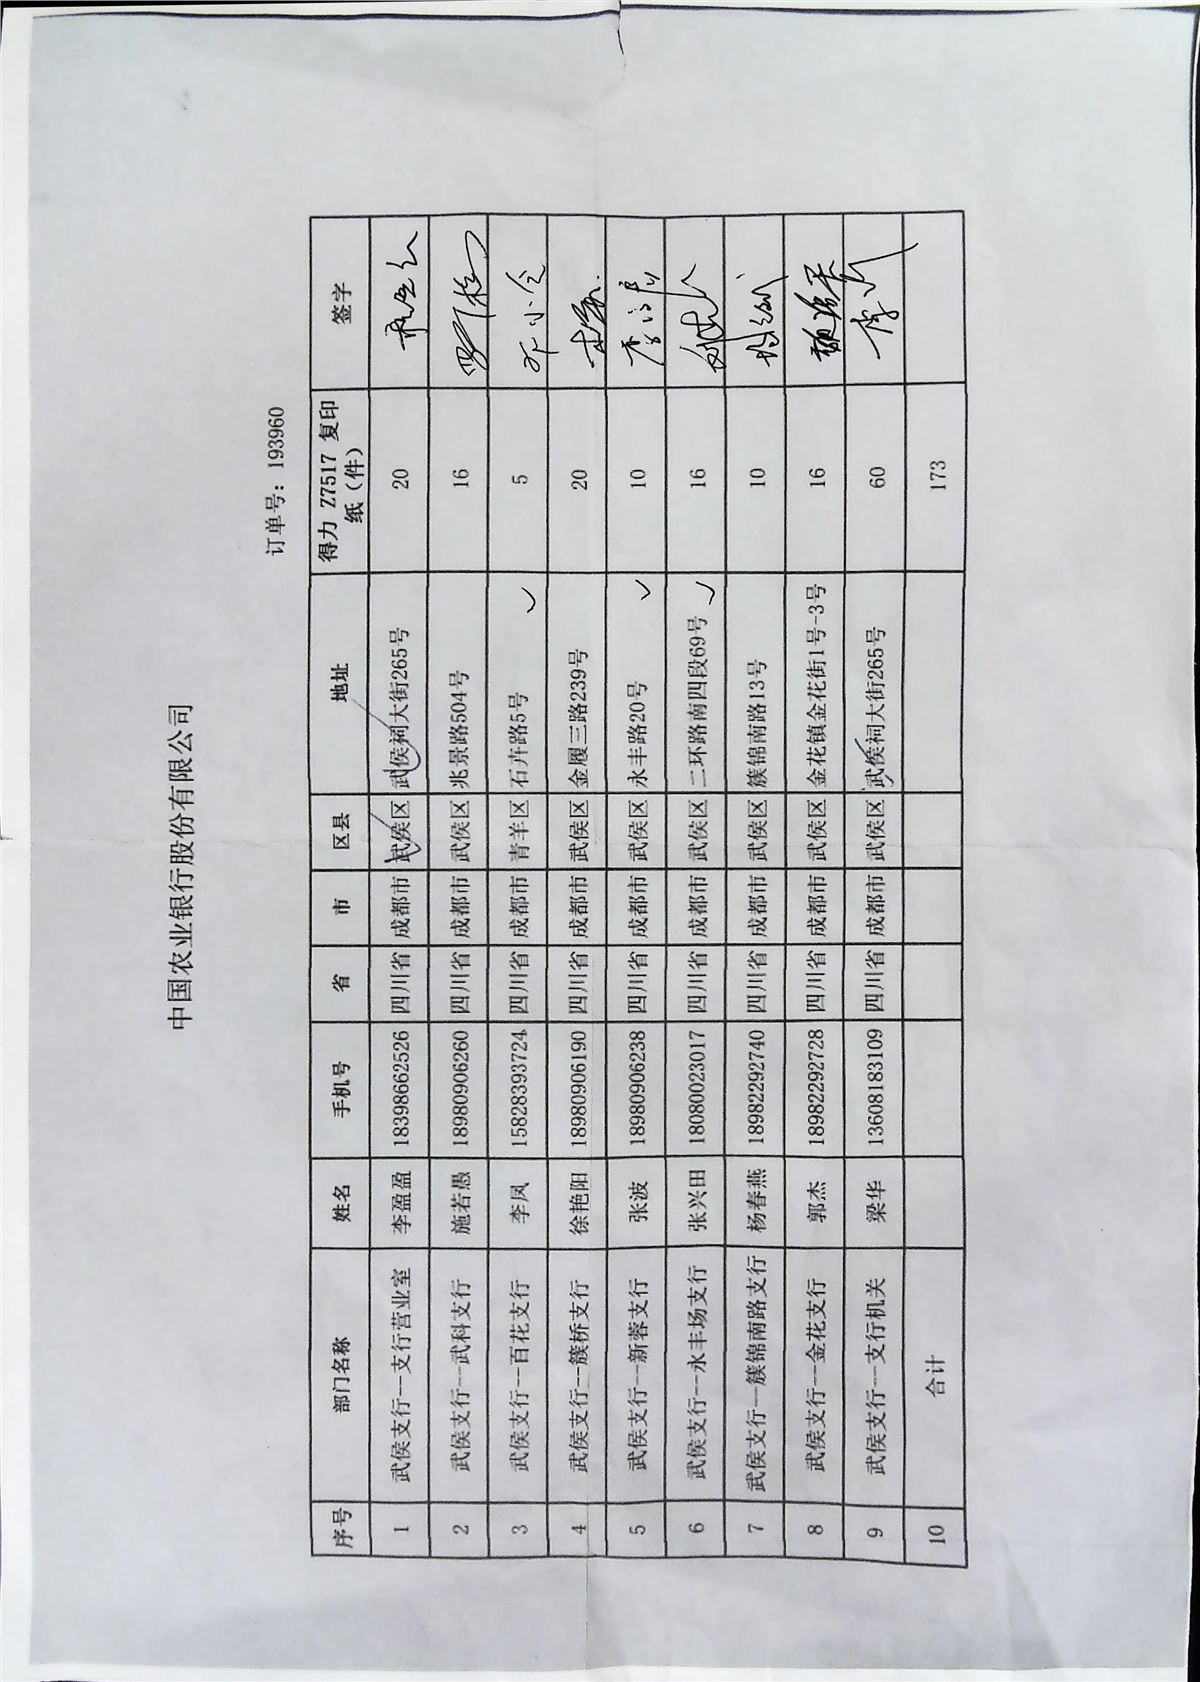 中国农业银行股份有限公司
订单号：193960
序号 部门名称 姓名 手机号 省 市 区县 地址 得力 Z7517 复印纸（件） 签字
1 武侯支行--支行营业室 李盈盈 18398662526 四川省 成都市 武侯区 武侯祠大街265号 20
2 武侯支行--武科支行 施若愚 18980906260 四川省 成都市 武侯区 兆景路504号 16
3 武侯支行--百花支行 李凤 15828393724 四川省 成都市 青羊区 石卉路5号 5
4 武侯支行--簇桥支行 徐艳阳 18980906190 四川省 成都市 武侯区 金履三路239号 20
5 武侯支行--新蓉支行 张波 18980906238 四川省 成都市 武侯区 永丰路20号 10
6 武侯支行--永丰场支行 张兴田 18080023017 四川省 成都市 武侯区 二环路南四段69号 16
7 武侯支行--簇锦南路支行 杨春燕 18982292740 四川省 成都市 武侯区 簇锦南路13号 10
8 武侯支行--金花支行 郭杰 18982292728 四川省 成都市 武侯区 金花镇金花街1号-3号 16
9 武侯支行--支行机关 梁华 13608183109 四川省 成都市 武侯区 武侯祠大街265号 60
10 合计 173